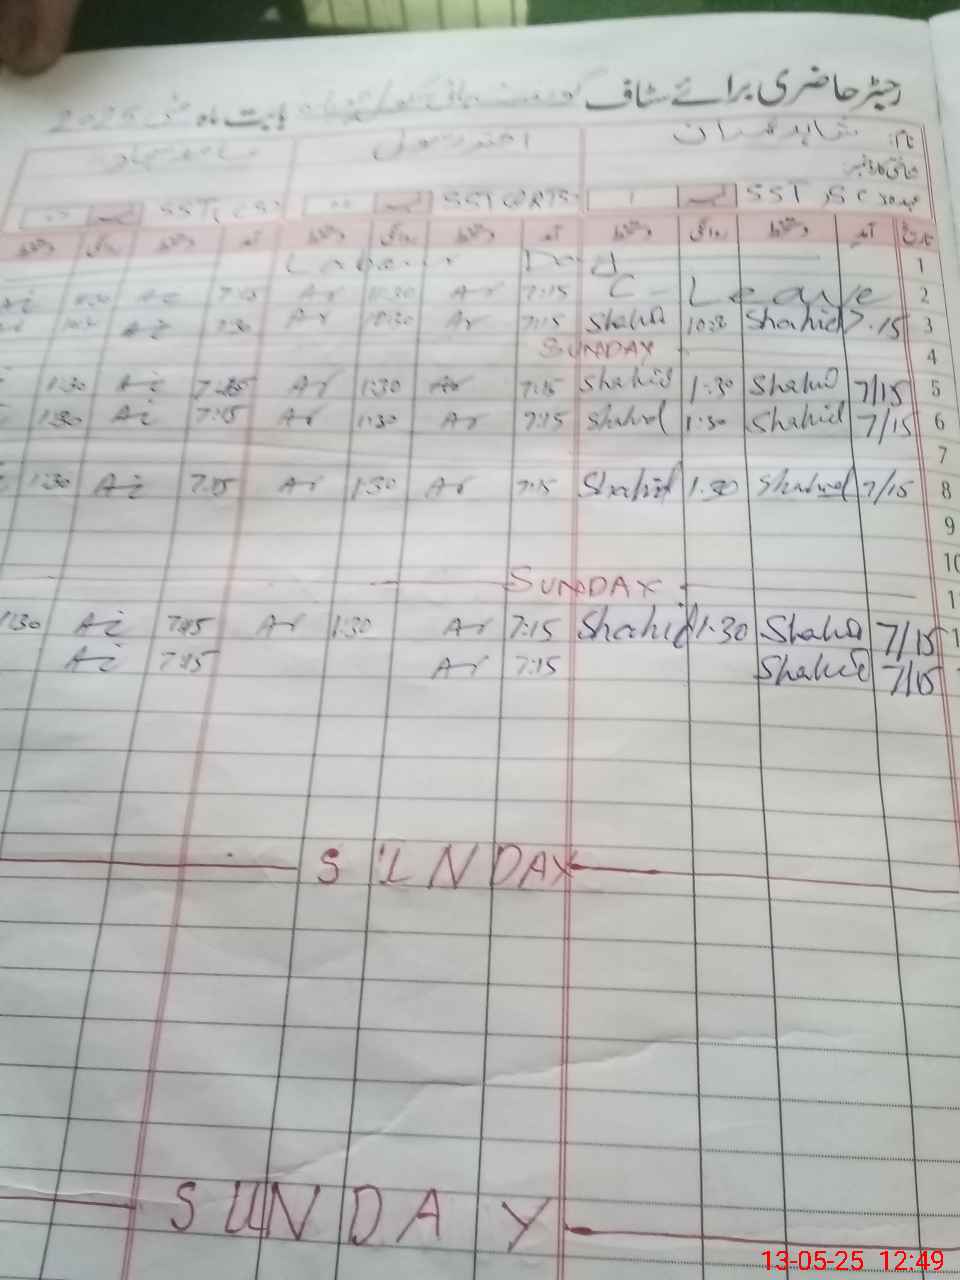 رجسٹر حاضری برائے سٹاف گورنمنٹ ہائی سکول بابت ماہ مئی 2025
نام: شاہد عمران
شناختی کارڈ نمبر
عہدہ SST SC 1 SST (ARTS) SST (CS)
تاریخ آمد دستخط روانگی دستخط آمد دستخط روانگی دستخط آمد دستخط روانگی دستخط
1 Labour Day
2 C-Leave 7:15 Ar 11:30 Ar 7:15 Ai
3 7.15 Shahid 10:30 Shahid 7:15 Ar 10:30 Ar 7:30 Ai
4 SUNDAY
5 7/15 Shahid 1:30 Shahid 7:15 Ar 1:30 Ar Ai 1:30
6 7/15 Shahid 1:30 Shahid 7:15 Ar 1:30 Ar 7:15 Ai 1:30
7
8 7/15 Shahid 1:30 Shahid 7:15 Ar 1:30 Ar 7:15 Ai 1:30
9
10
SUNDAY
7/15 Shahid 1:30 Shahid 7:15 Ar 1:30 Ar 7:15 Ai 1:30
7/15 Shahid 7:15 Ar 7:15 Ai
SUNDAY
SUNDAY
13-05-25 12:49